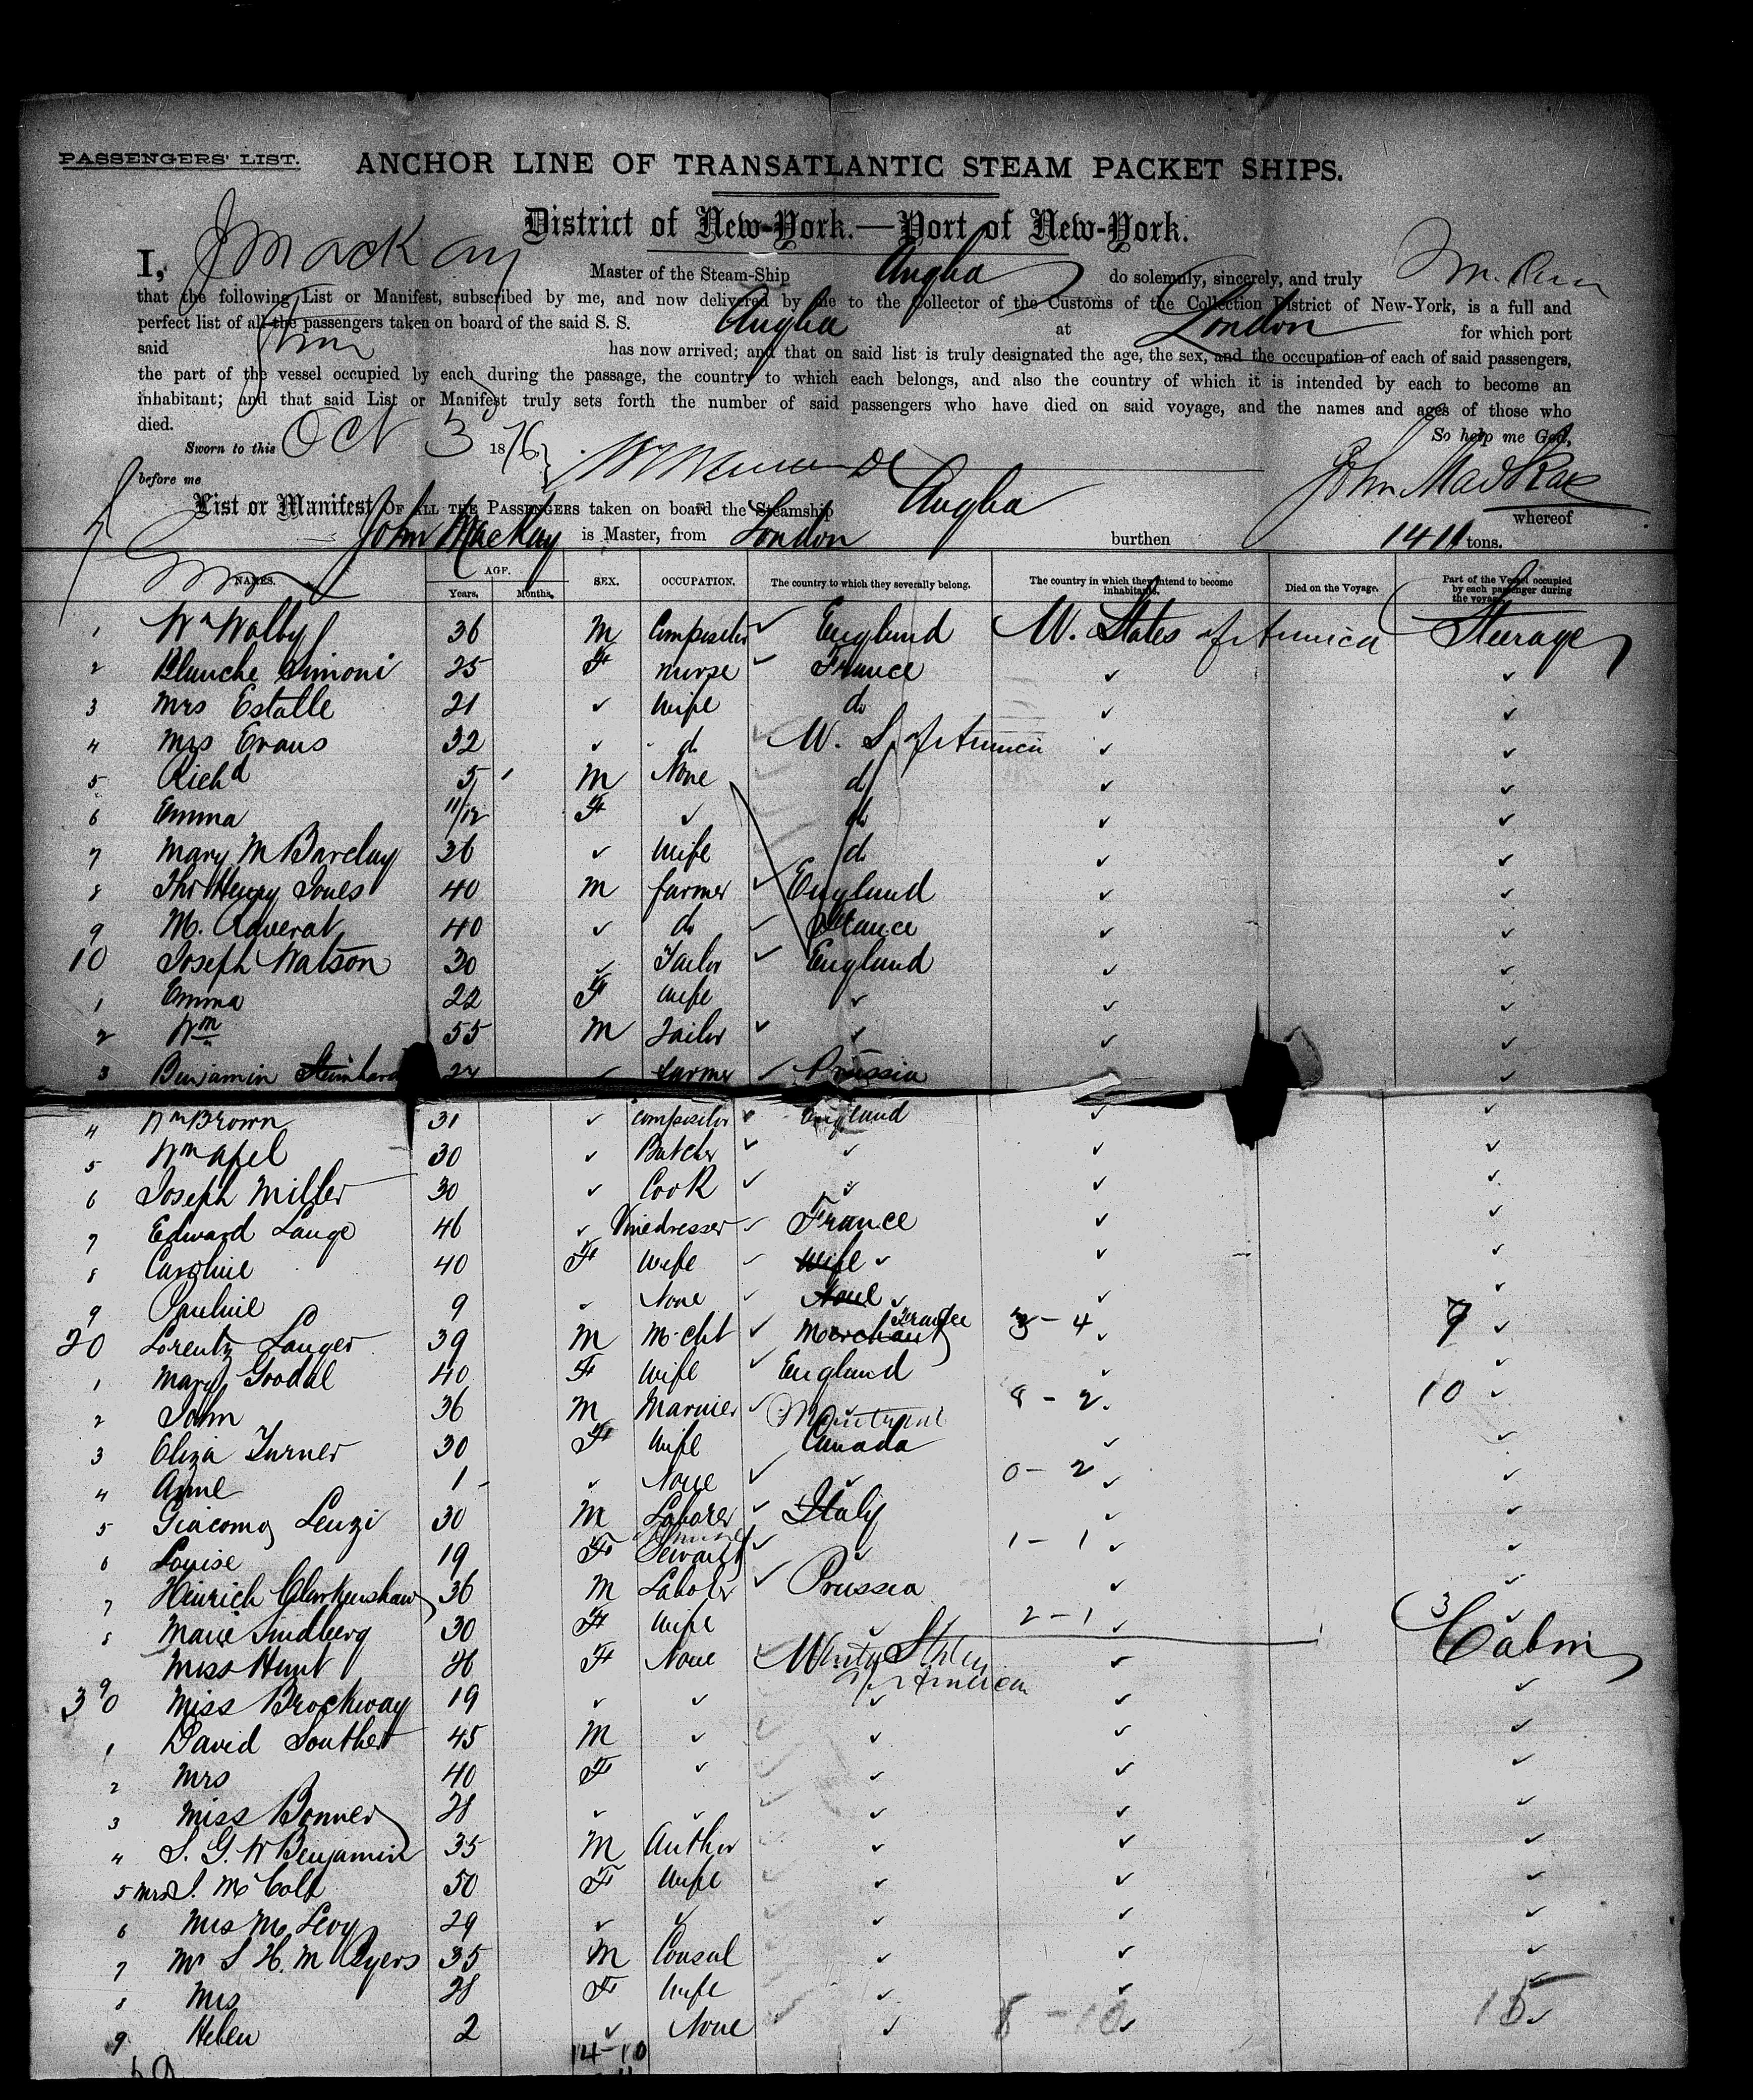 PASSENGERS' LIST.
ANCHOR LINE OF TRANSATLANTIC STEAM PACKET SHIPS.
District of New-York.—Port of New-York.
I, J Mackay Master of the Steam-Ship Anglia do solemnly, sincerely, and truly
that the following List or Manifest, subscribed by me, and now delivered by me to the Collector of the Customs of the Collection District of New-York, is a full and
perfect list of all the passengers taken on board of the said S. S. Anglia at London for which port
said has now arrived; and that on said list is truly designated the age, the sex, and the occupation of each of said passengers,
the part of the vessel occupied by each during the passage, the country to which each belongs, and also the country of which it is intended by each to become an
inhabitant; and that said List or Manifest truly sets forth the number of said passengers who have died on said voyage, and the names and ages of those who
died.
So help me God,
Sworn to this Oct 3 1876
before me
John MacKay
List or Manifest OF ALL THE PASSENGERS taken on board the Steamship Anglia whereof
John MacKay is Master, from London burthen 1411 tons.
NAMES. AGE. Years. Months. SEX. OCCUPATION. The country to which they severally belong. The country in which they intend to become inhabitants. Died on the Voyage. Part of the Vessel occupied by each passenger during the voyage.
1 Wm Walby 36 M Compositor ✓ England U. States of America Steerage
2 Blanche Simoni 25 F nurse ✓ France ✓ ✓
3 Mrs Estalle 21 ✓ wife do ✓ ✓
4 Mrs Evans 32 ✓ do U. S. of America ✓ ✓
5 Richd 5 M None do ✓ ✓
6 Emma 11/12 F ✓ do ✓ ✓
7 Mary M Barclay 36 ✓ wife do ✓ ✓
8 Thos Henry Jones 40 M farmer ✓ England ✓ ✓
9 M. Raverat 40 ✓ do ✓ France ✓ ✓
10 Joseph Watson 30 ✓ Tailor ✓ England ✓ ✓
1 Emma 22 F wife ✓ ✓ ✓
2 Wm 55 M Tailor ✓ ✓ ✓ ✓
3 Benjamin Steinhard 24 ✓ farmer ✓ Prussia ✓
4 Wm Brown 31 ✓ compositor ✓ England ✓ ✓
5 Wm Apel 30 ✓ Butcher ✓ ✓ ✓ ✓
6 Joseph Miller 30 ✓ Cook ✓ ✓ ✓ ✓
7 Edward Lange 46 ✓ Vinedresser ✓ France ✓ ✓
8 Caroline 40 F wife ✓ wife ✓ ✓ ✓
9 Pauline 9 ✓ None ✓ None ✓ ✓ ✓
20 Lorentz Langer 39 M Mcht ✓ Merchant France 3 - 4 ✓ 9 ✓
1 Mary Goodal 40 F wife ✓ England ✓ ✓
2 John 36 M Marnier ✓ ✓ 8 - 2 10 ✓
3 Eliza Turner 30 F wife Canada ✓ ✓
4 Anne 1 ✓ None ✓ ✓ 0 - 2 ✓ ✓
5 Giacomo Lenzi 30 M Laborer ✓ Italy ✓ ✓
6 Louise 19 F Servant ✓ ✓ 1 - 1 ✓ ✓
7 Heinrich Clarkenshaw 36 M Labober ✓ Prussia ✓ ✓
8 Marie Lindberg 30 F wife ✓ 2 - 1 ✓ 3 ✓
9 Miss Hunt 46 F None ✓ United States of America ✓ Cabin
30 Miss Brockway 19 ✓ ✓ ✓ ✓ ✓
1 David Souther 45 M ✓ ✓ ✓ ✓ ✓
2 Mrs 40 F ✓ ✓ ✓ ✓ ✓
3 Miss Bonner 28 ✓ ✓ ✓ ✓ ✓ ✓
4 S. G. W Benjamin 35 M Author ✓ ✓ ✓ ✓
5 Mrs J. McColl 50 F wife ✓ ✓ ✓ ✓
6 Mrs M. Levy 29 ✓ ✓ ✓ ✓ ✓
7 Mr S H. M Byers 35 M Consul ✓ ✓ ✓
8 Mrs 28 F wife ✓ ✓ ✓
9 Helen 2 ✓ None ✓ ✓ 8 - 10 ✓ 15 ✓
14-10